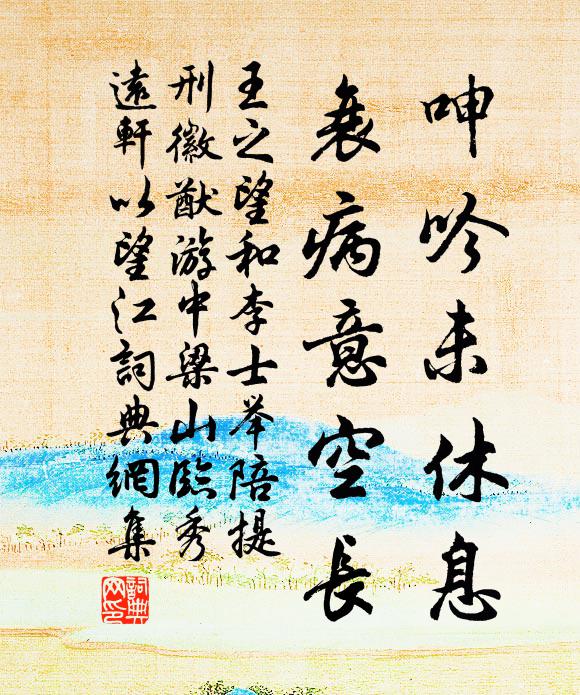 呻吟未休息
衰病意空長
王之望和李士举陪提
刑徽猷游中梁山臨秀
遠軒以望江詞典網集
詞典
网印